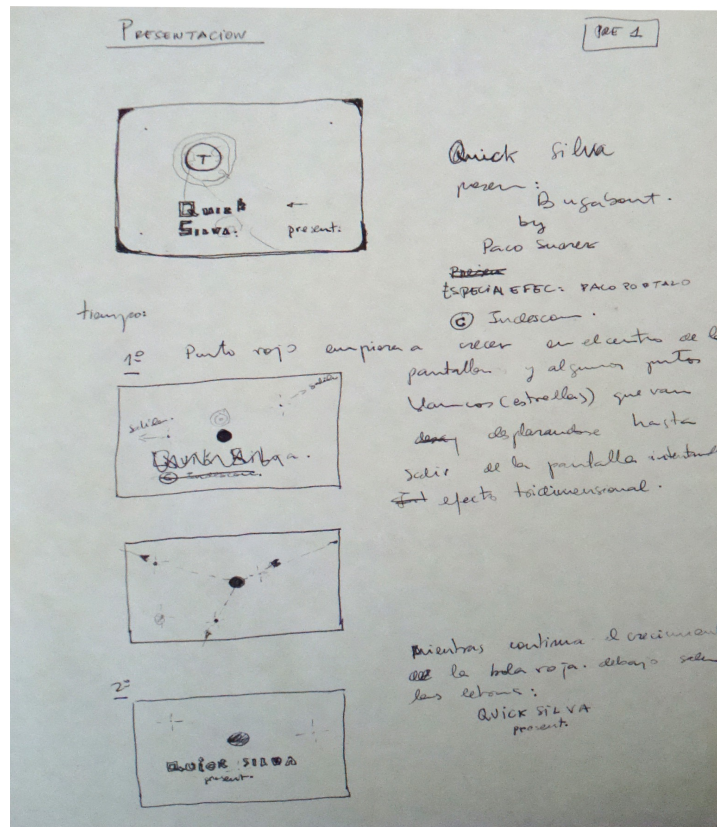 PRESENTACION
PRE 1
T
QUICK
SILVA.
present.
Quick Silva
presen:
Bugabout.
by
Paco Suarez
ESPECIAL EFEC: PACO PORTALO
© Indescom.
tiempos
1º Punto rojo empieza a crecer en el centro de la
pantalla y algunos puntos
blancos (estrellas) que van
desplazandose hasta
salir de la pantalla intentando
efecto tridimensional.
salida.
salida
2º
mientras continua el crecimien
de la bola roja. debajo salen
las letras:
QUICK SILVA
present.
QUICK SILVA
present.